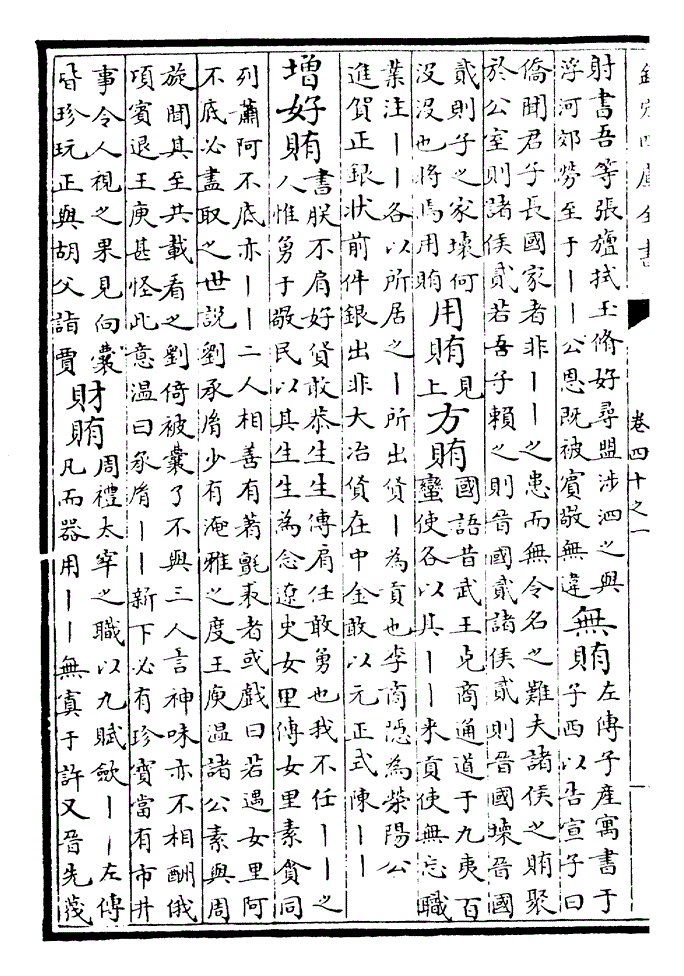 欽定四庫全書
卷四十之一
射書吾等張旜拭玉脩好尋盟涉泗之與
浮河郊勞至于丨丨公恩既被賓敬無違
無賄
左傳子產寓書于
子西以告宣子曰
僑聞君子長國家者非丨丨之患而無令名之難夫諸侯之賄聚
於公室則諸侯貳若吾子賴之則晉國貳諸侯貳則晉國壞晉國
貳則子之家壞何
没没也將焉用賄
用賄
見
上
方賄
國語昔武王克商通道于九夷百
蠻使各以其丨丨来貢使無忘職
業注丨丨各以所居之丨所出貨丨為貢也李商隱為滎陽公
進賀正銀狀前件銀出非大冶貨在中金敢以元正式陳丨丨
增好賄
書朕不肩好貨敢恭生生傳肩任敢勇也我不任丨丨之
人惟勇于敬民以其生生為念遼史女里傳女里素貪同
列蕭阿不底亦丨丨二人相善有著氈裘者或戲曰若遇女里阿
不底必盡取之世說劉承胤少有淹雅之度王庾溫諸公素與周
旋聞其至共載看之劉倚被囊了不與三人言神味亦不相酬俄
項賓退王庾甚怪此意溫曰承胤丨丨新下必有珍寶當有市井
事令人視之果見向囊
皆珍玩正與胡父諧賈
財賄
周禮太宰之職以九賦斂丨丨左傳
凡而器用丨丨無寘于許又晉先蔑